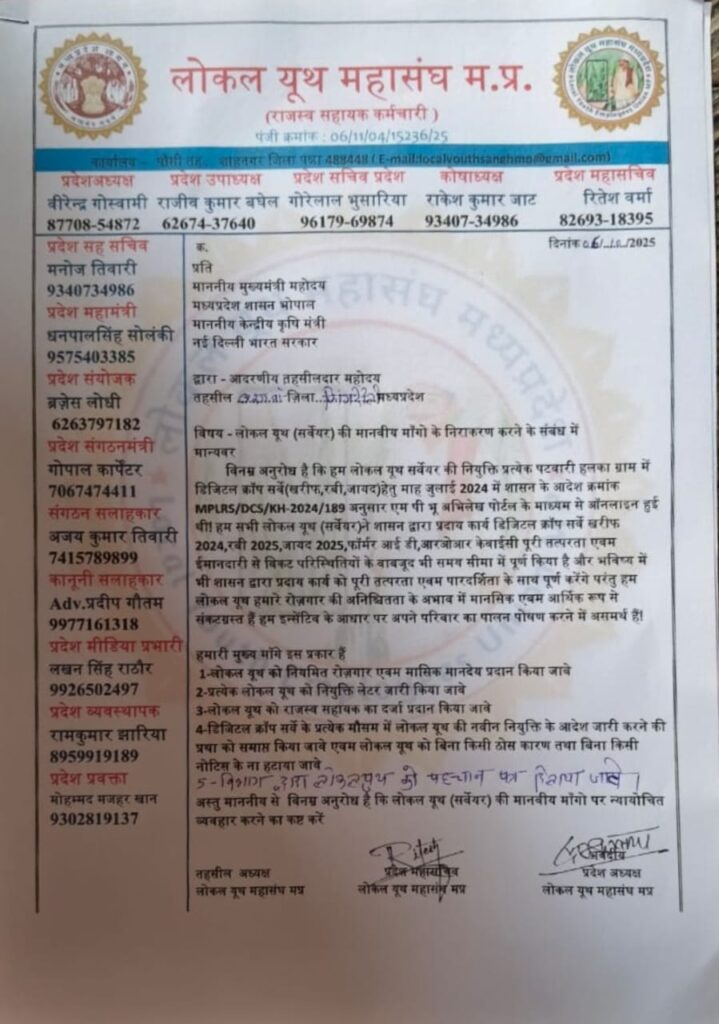 लोकल यूथ महासंघ म.प्र.
(राजस्व सहायक कर्मचारी )
पंजी क्रमांक : 06/11/04/15236/25
कार्यालय – पौंगी तह. शाहनगर जिला पन्ना 488448 ( E-mail:localyouthsanghmp@gmail.com)
प्रदेशअध्यक्ष प्रदेश उपाध्यक्ष प्रदेश सचिव प्रदेश कोषाध्यक्ष प्रदेश महासचिव
वीरेन्द्र गोस्वामी राजीव कुमार बघेल गोरेलाल भुसारिया राकेश कुमार जाट रितेश वर्मा
87708-54872 62674-37640 96179-69874 93407-34986 82693-18395
प्रदेश सह सचिव
मनोज तिवारी
9340734986
प्रदेश महामंत्री
धनपालसिंह सोलंकी
9575403385
प्रदेश संयोजक
ब्रज़ेस लोधी
6263797182
प्रदेश संगठनमंत्री
गोपाल कार्पेंटर
7067474411
संगठन सलाहकार
अजय कुमार तिवारी
7415789899
कानूनी सलाहकार
Adv.प्रदीप गौतम
9977161318
प्रदेश मीडिया प्रभारी
लखन सिंह राठौर
9926502497
प्रदेश व्यवस्थापक
रामकुमार झारिया
8959919189
प्रदेश प्रवक्ता
मोहम्मद मजहर खान
9302819137
क. दिनांक 06/10/2025
प्रति
माननीय मुख्यमंत्री महोदय
मध्यप्रदेश शासन भोपाल
माननीय केन्द्रीय कृषि मंत्री
नई दिल्ली भारत सरकार
द्वारा - आदरणीय तहसीलदार महोदय
तहसील ज़िला.. मध्यप्रदेश
विषय - लोकल यूथ (सर्वेयर) की मानवीय माँगो के निराकरण करने के संबंध में
मान्यवर
विनम्र अनुरोध है कि हम लोकल यूथ सर्वेयर की नियुक्ति प्रत्येक पटवारी हलका ग्राम में
डिजिटल क्रॉप सर्वे(खरीफ,रवी,जायद)हेतु माह जुलाई 2024 में शासन के आदेश क्रमांक
MPLRS/DCS/KH-2024/189 अनुसार एम पी भू अभिलेख पोर्टल के माध्यम से ऑनलाइन हुई
थी! हम सभी लोकल यूथ (सर्वेयर)ने शासन द्वारा प्रदाय कार्य डिजिटल क्रॉप सर्वे खरीफ
2024,रवी 2025,जायद 2025,फॉर्मर आई डी,आरओआर केवाईसी पूरी तत्परता एवम
ईमानदारी से विकट परिस्थितियों के बावजूद भी समय सीमा में पूर्ण किया है और भविष्य में
भी शासन द्वारा प्रदाय कार्य को पूरी तत्परता एवम पारदर्शिता के साथ पूर्ण करेंगे परंतु हम
लोकल यूथ हमारे रोज़गार की अनिश्चितता के अभाव में मानसिक एवम आर्थिक रूप से
संकटग्रस्त हैं हम इन्सेंटिव के आधार पर अपने परिवार का पालन पोषण करने में असमर्थ हैं!
हमारी मुख्य माँगे इस प्रकार हैं
1-लोकल यूथ को नियमित रोज़गार एवम मासिक मानदेय प्रदान किया जावे
2-प्रत्येक लोकल यूथ को नियुक्ति लेटर जारी किया जावे
3-लोकल यूथ को राजस्व सहायक का दर्जा प्रदान किया जावे
4-डिजिटल क्रॉप सर्वे के प्रत्येक मौसम में लोकल यूथ की नवीन नियुक्ति के आदेश जारी करने की
प्रथा को समाप्त किया जावे एवम लोकल यूथ को बिना किसी ठोस कारण तथा बिना किसी
नोटिस के ना हटाया जावे
5- विभाग द्वारा लोकल यूथ को पहचान पत्र दिलाया जावे।
अस्तु माननीय से विनम्र अनुरोध है कि लोकल यूथ (सर्वेयर) की मानवीय माँगो पर न्यायोचित
व्यवहार करने का कष्ट करें
भवदीय
तहसील अध्यक्ष प्रदेश महासचिव प्रदेश अध्यक्ष
लोकल यूथ महासंघ मप्र लोकल यूथ महासंघ मप्र लोकल यूथ महासंघ मप्र